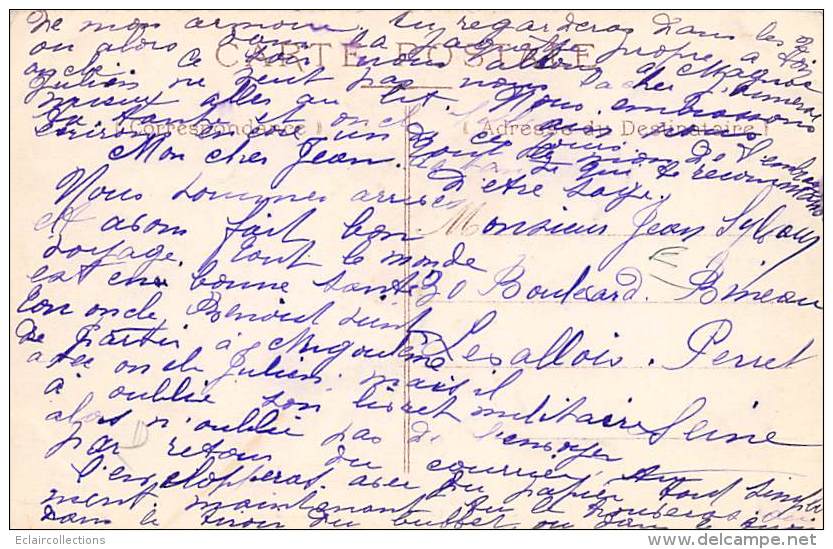 De mon armoire. tu regarderas dans les
ou alors dans la jaquette propre
CARTE POSTALE
oncle. Ce soir nous allons à
Julien ne peut pas nous
mieux aller au lit. Nous embrassons
Ta tante et oncle
Correspondance
Adresse du Destinataire
Mon cher Jean.
qui te recommande
d'être sage.
Nous sommes arrivés
et avons fait bon
voyage. tout le monde
est en bonne santé
ton oncle Benoit vient
de partir à Angoulême
avec oncle Julien, mais il
a oublié son livret militaire
alors n'oublie pas de l'envoyer
par retour du courrier, tu
l'enveloppera avec du papier tout simple
ment. maintenant tu le trouveras
dans le tiroir du buffet ou dans le
Monsieur Jean Sylvain
30 Boulevard. Bineau
Levallois. Perret
Seine
©Eclaircollections
www.delcampe.net